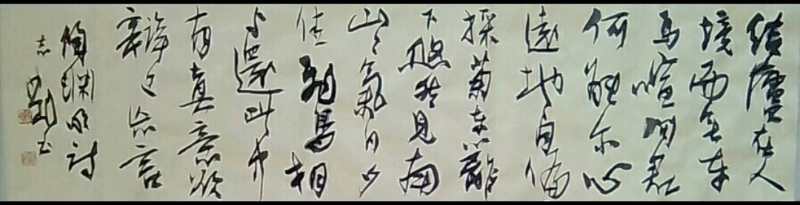 結廬在人
境而無車
馬喧問君
何能尔心
遠地自偏
採菊東籬
下悠然見南
山山氣日夕
佳飛鳥相
与還此中
有真意欲
辯已忘言
陶渊明詩
志